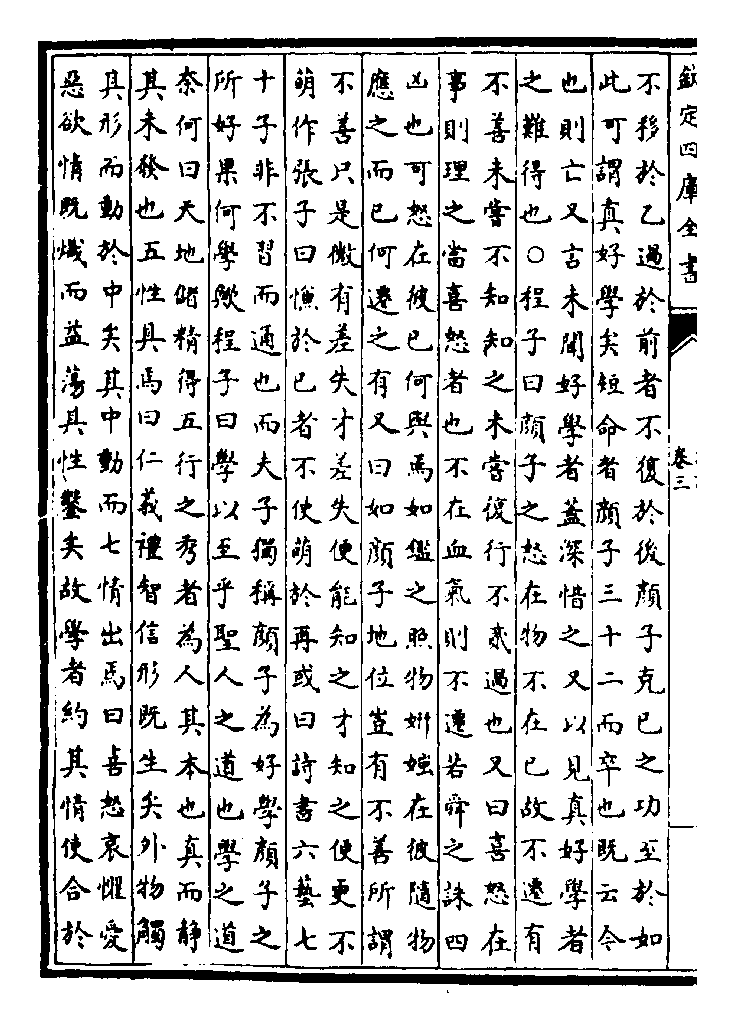 欽定四庫全書
卷三
不移於乙過於前者不復於後顔子克已之功至於如
此可謂真好學矣短命者顔子三十二而卒也既云今
也則亡又言未聞好學者蓋深惜之又以見真好學者
之難得也○程子曰顔子之怒在物不在已故不遷有
不善未嘗不知知之未嘗復行不貳過也又曰喜怒在
事則理之當喜怒者也不在血氣則不遷若舜之誅四
凶也可怒在彼已何與焉如鑑之照物妍媸在彼隨物
應之而已何遷之有又曰如顔子地位豈有不善所謂
不善只是微有差失才差失便能知之才知之便更不
萌作張子曰慊於已者不使萌於再或曰詩書六藝七
十子非不習而通也而夫子獨稱顔子為好學顔子之
所好果何學歟程子曰學以至乎聖人之道也學之道
奈何曰天地儲精得五行之秀者為人其本也真而静
其未發也五性具焉曰仁義禮智信形既生矣外物觸
其形而動於中矣其中動而七情出焉曰喜怒哀懼愛
惡欲情既熾而益蕩其性鑿矣故學者約其情使合於